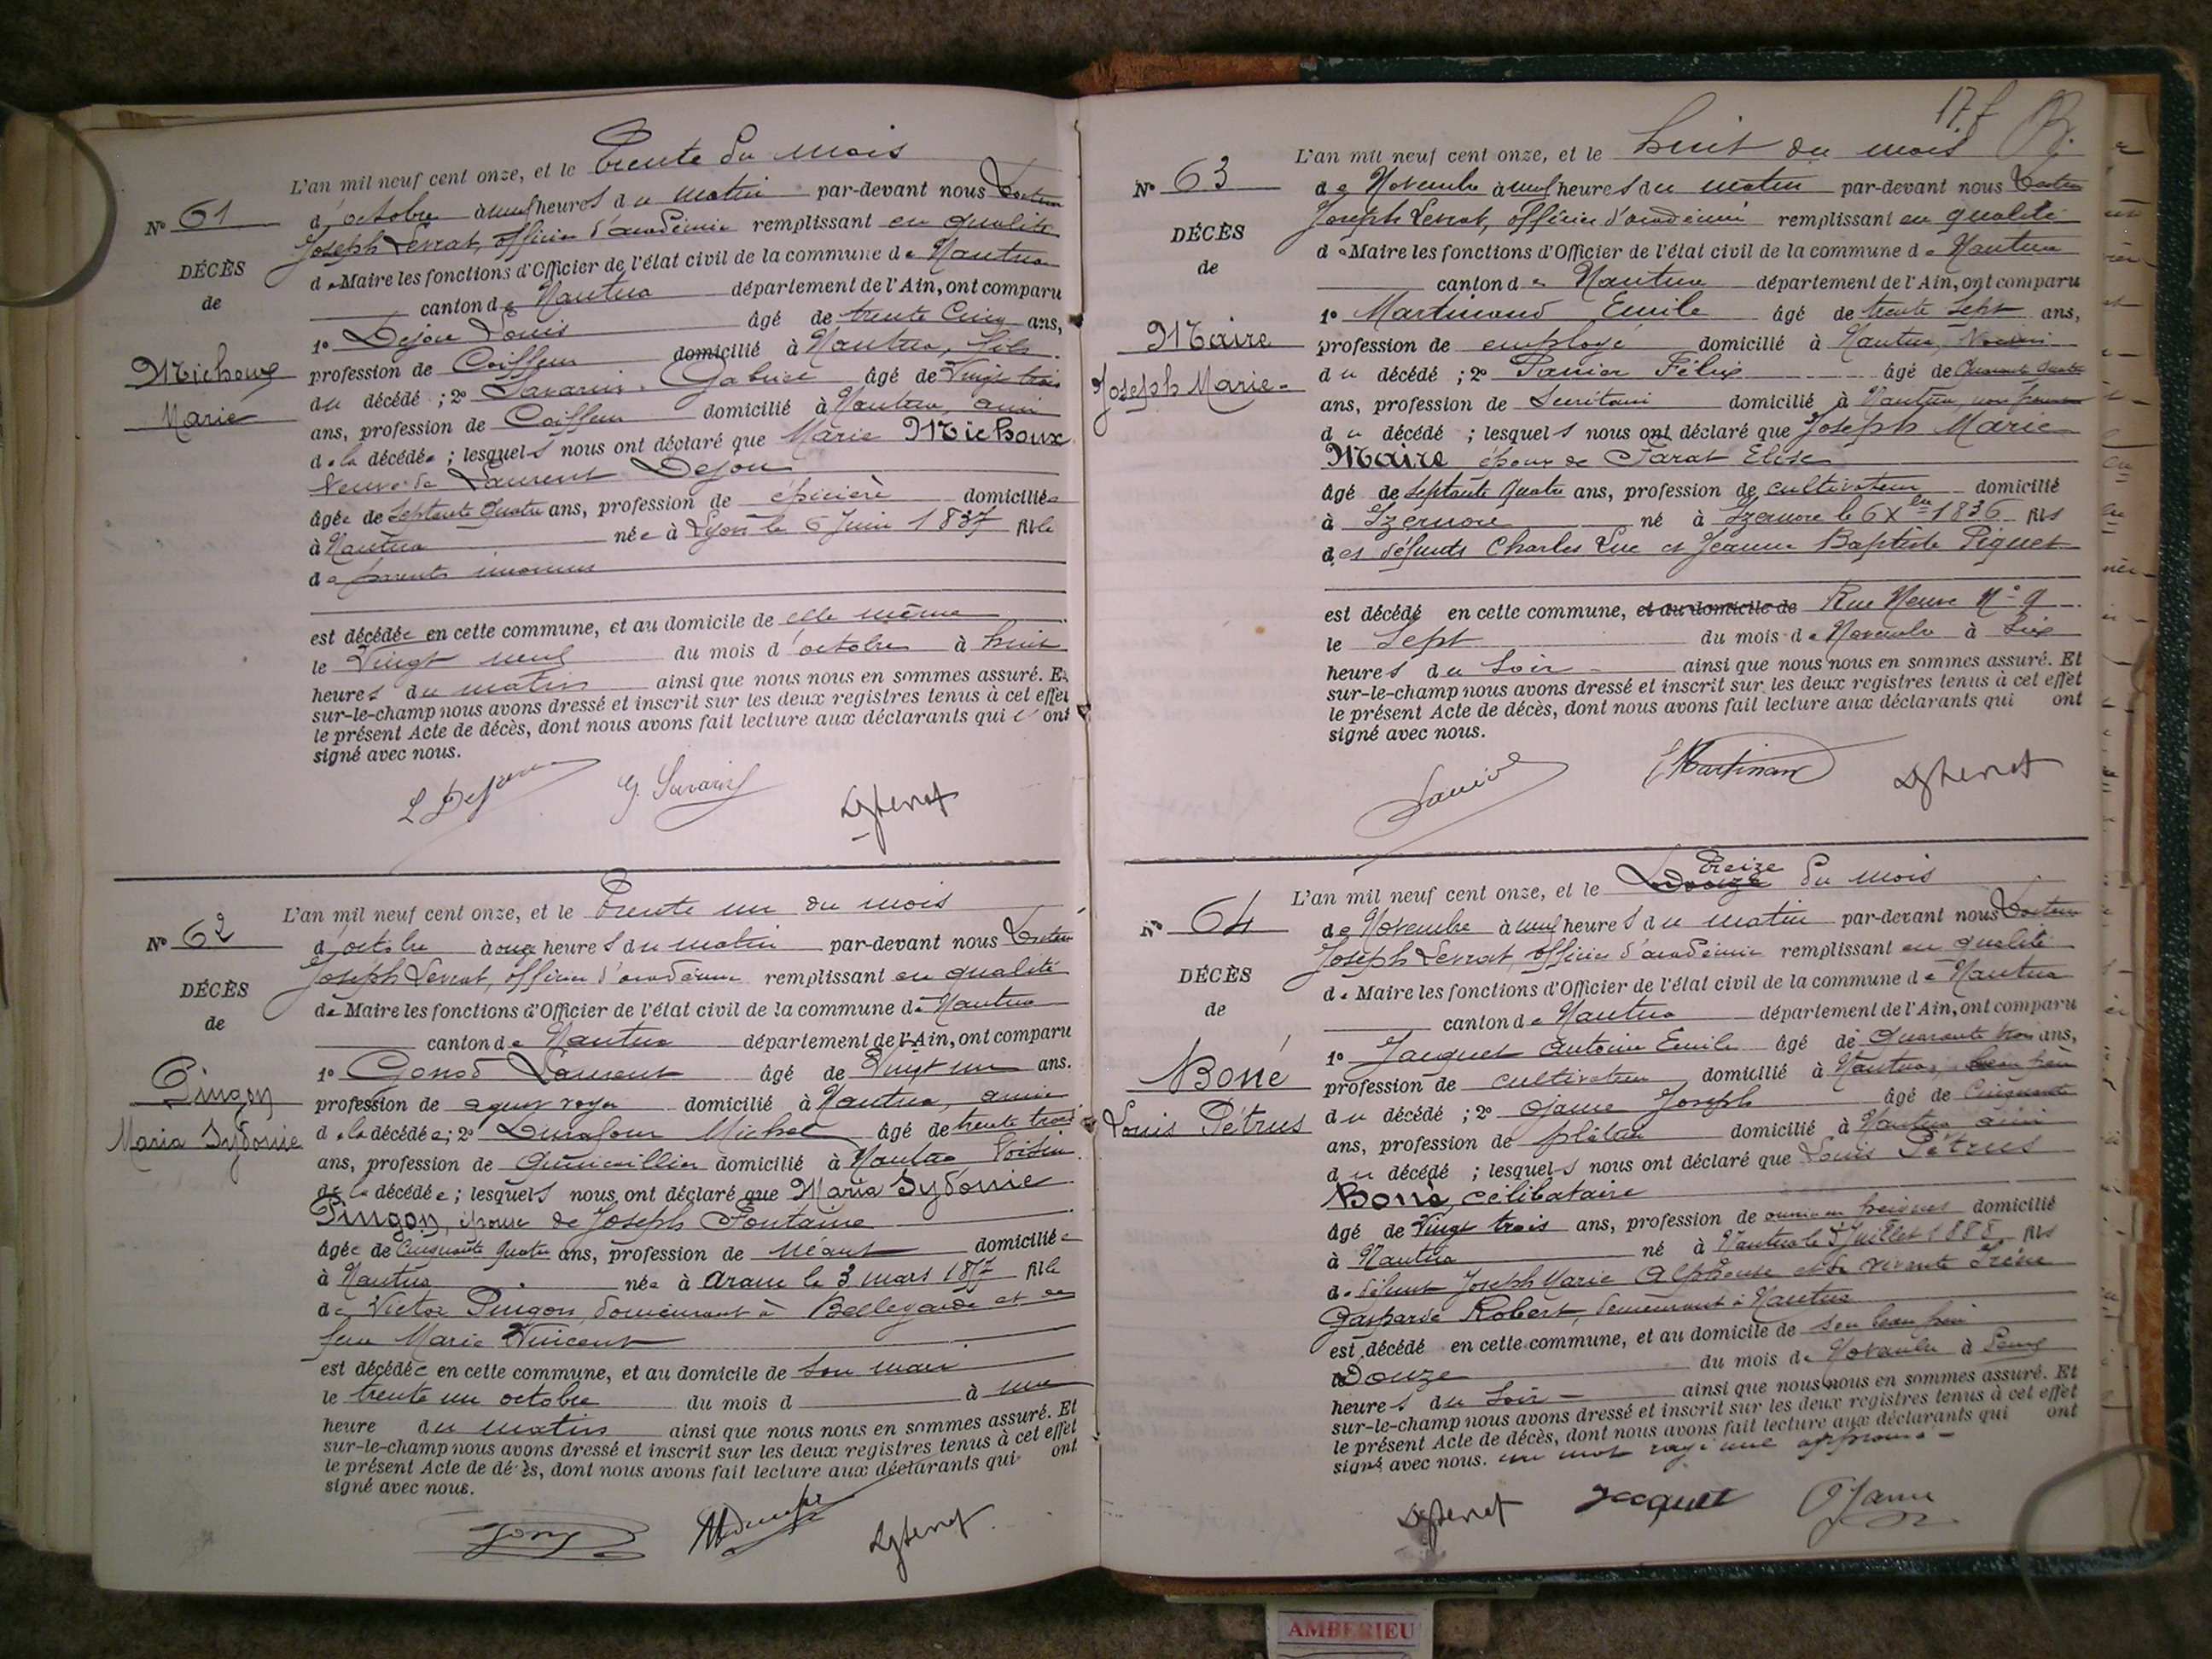 L'an mil neuf cent onze, et le Trente du mois
N° 61
d'octobre à neuf heures du matin par-devant nous Docteur
Joseph Levrat, officier d'académie remplissant en qualité
DÉCÈS
de Maire les fonctions d'Officier de l'état civil de la commune de Nantua
de
canton de Nantua département de l'Ain, ont comparu
1° Dejou Louis âgé de trente Cinq ans,
Michoux
Marie
profession de Coiffeur domicilié à Nantua, fils
du décédé ; 2° Savarin Gabriel âgé de Vingt trois
ans, profession de Coiffeur domicilié à Nantua, ami
de la décédée ; lesquels nous ont déclaré que Marie Michoux
Veuve de Laurent Dejou
âgée de Septante Quatre ans, profession de épicière domiciliée
à Nantua née à Lyon le 6 Juin 1837 fille
de parents inconnus
est décédée en cette commune, et au domicile de elle même
le Vingt neuf du mois d'octobre à huit
heures du matin ainsi que nous nous en sommes assuré. Et
sur-le-champ nous avons dressé et inscrit sur les deux registres tenus à cet effet
le présent Acte de décès, dont nous avons fait lecture aux déclarants qui ont
signé avec nous.
L Dejou G. Savarin
L'an mil neuf cent onze, et le Trente un du mois
N° 62
d'octobre à onze heures du matin par-devant nous Docteur
Joseph Levrat, officier d'académie remplissant en qualité
DÉCÈS
de Maire les fonctions d'Officier de l'état civil de la commune de Nantua
de
canton de Nantua département de l'Ain, ont comparu
1° Gonod Laurent âgé de Vingt un ans.
Pingon
Maria Sydonie
profession de agent voyer domicilié à Nantua, ami
de la décédée ; 2° Durafour Michel âgé de trente trois
ans, profession de Quincaillier domicilié à Nantua Voisin
de la décédée ; lesquels nous ont déclaré que Maria Sydonie
Pingon, épouse de Joseph Fontaine
âgée de Cinquante Quatre ans, profession de Néant domiciliée
à Nantua née à Aranc le 3 mars 1857 fille
de Victor Pingon, demeurant à Bellegarde et de
feue Marie Vincent
est décédée en cette commune, et au domicile de son mari
le trente un octobre du mois d à une
heure du matin ainsi que nous nous en sommes assuré. Et
sur-le-champ nous avons dressé et inscrit sur les deux registres tenus à cet effet
le présent Acte de décès, dont nous avons fait lecture aux déclarants qui ont
signé avec nous.
L'an mil neuf cent onze, et le huit du mois
N° 63
de Novembre à neuf heures du matin par-devant nous Docteur
Joseph Levrat, officier d'académie remplissant en qualité
DÉCÈS
de Maire les fonctions d'Officier de l'état civil de la commune de Nantua
de
canton de Nantua département de l'Ain, ont comparu
1° Martinand Emile âgé de trente Sept ans,
Maire
Joseph Marie
profession de employé domicilié à Nantua, Voisin
du décédé ; 2° Panier Félix âgé de Quarante Quatre
ans, profession de Secrétaire domicilié à Nantua, non parent
du décédé ; lesquels nous ont déclaré que Joseph Marie
Maire époux de Tarat Elise
âgé de Septante Quatre ans, profession de cultivateur domicilié
à Izernore né à Izernore le 6 Xbre 1836 fils
des défunts Charles Luc et Jeanne Baptiste Piquet
est décédé en cette commune, et au domicile de Rue Neuve N° 9
le Sept du mois de Novembre à Six
heures du Soir ainsi que nous nous en sommes assuré. Et
sur-le-champ nous avons dressé et inscrit sur les deux registres tenus à cet effet
le présent Acte de décès, dont nous avons fait lecture aux déclarants qui ont
signé avec nous.
Panier EMartinand
L'an mil neuf cent onze, et le Douze Treize du mois
N° 64
de Novembre à neuf heures du matin par-devant nous Docteur
Joseph Levrat, officier d'académie remplissant en qualité
DÉCÈS
de Maire les fonctions d'Officier de l'état civil de la commune de Nantua
de
canton de Nantua département de l'Ain, ont comparu
1° Jacquet Antoine Emile âgé de Quarante trois ans,
Boné
Louis Pétrus
profession de cultivateur domicilié à Nantua, beau père
du décédé ; 2° Ojame Joseph âgé de Cinquante
ans, profession de plâtrier domicilié à Nantua ami
du décédé ; lesquels nous ont déclaré que Louis Pétrus
Boné, célibataire
âgé de Vingt trois ans, profession de ouvrier domicilié
à Nantua né à Nantua le 5 Juillet 1888 fils
de défunt Joseph Marie Alphonse et de vivante Irène
Gasparde Robert, demeurant à Nantua
est décédé en cette commune, et au domicile de son beau père
le Douze du mois de Novembre à
heures du Soir ainsi que nous nous en sommes assuré. Et
sur-le-champ nous avons dressé et inscrit sur les deux registres tenus à cet effet
le présent Acte de décès, dont nous avons fait lecture aux déclarants qui ont
signé avec nous. un mot rayé nul approuvé
Jacquet OJame
AMBERIEU